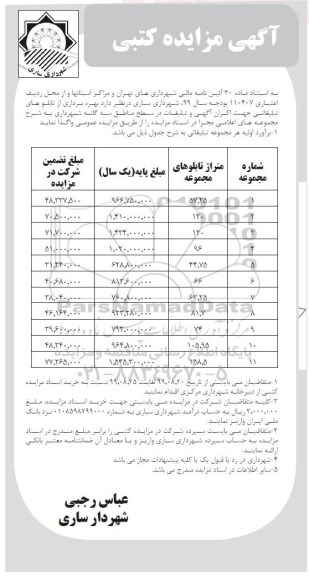 آگهی مزایده کتبی
شهرداری ساری
به استناد ماده ۳۰ آئین نامه مالی شهرداری های تهران و مراکز استانها و از محل ردیف
اعتباری ۱۱۰۴۰۷ بودجه سال ۹۹، شهرداری ساری درنظر دارد بهره برداری از تابلو های
تبلیغاتی جهت اکران آگهی و تبلیغات در سطح مناطق سه گانه شهرداری به شرح
مجموعه های اعلامی مجزا در اسناد مزایده را از طریق مزایده عمومی واگذا نماید
۱-برآورد اولیه هر مجموعه تبلیغاتی به شرح جدول ذیل می باشد.
شماره مجموعه متراژ تابلوهای مجموعه مبلغ پایه(یک سال) مبلغ تضمین شرکت در مزایده
۱ ۵۷,۲۵ ۹۶۶,۷۵۰,۰۰۰ ۴۸,۳۳۷,۵۰۰
۲ ۱۲۰ ۱,۴۱۰,۰۰۰,۰۰۰ ۷۰,۵۰۰,۰۰۰
۳ ۱۲۰ ۱,۴۳۴,۰۰۰,۰۰۰ ۷۱,۷۰۰,۰۰۰
۴ ۹۶ ۱,۰۲۰,۰۰۰,۰۰۰ ۵۱,۰۰۰,۰۰۰
۵ ۴۴,۷۵ ۶۲۸,۸۰۰,۰۰۰ ۳۱,۴۴۰,۰۰۰
۶ ۶۶ ۸۱۳,۶۰۰,۰۰۰ ۴۰,۶۸۰,۰۰۰
۷ ۶۳,۲۵ ۷۶۰,۸۰۰,۰۰۰ ۳۸,۰۴۰,۰۰۰
۸ ۸۱,۷ ۹۲۳,۲۸۰,۰۰۰ ۴۶,۱۶۴,۰۰۰
۹ ۷۴ ۷۹۲,۰۰۰,۰۰۰ ۳۹,۶۰۰,۰۰۰
۱۰ ۱۰۵,۹۵ ۹۶۴,۸۰۰,۰۰۰ ۴۸,۲۴۰,۰۰۰
۱۱ ۱۵۸,۵ ۱,۵۴۵,۳۰۰,۰۰۰ ۷۷,۲۶۵,۰۰۰
ParsNamadData
۰۲۱-۸۸۳۴۹۶۷۰-۵
۱-متقاضیان می بایستی از تاریخ ۹۹,۰۸,۲۰ لغایت ۹۹,۰۸,۲۵ نسبت به خرید اسناد مزایده
کتبی از دبیرخانه شهرداری مرکزی اقدام نمایند
۲-کلیه متقاضیان شرکت در مزایده می بایستی جهت خرید اسناد مزایده، مبلغ
۲,۰۰۰,۰۰۰ ریال به حساب درآمد شهرداری ساری به شماره ۰۱۰۸۵۹۸۷۹۹۰۰۰ نزد بانک
ملی ایران واریز نمایند.
۳-متقاضیان می بایست سپرده شرکت در مزایده کتبی را برابر مبلغ مندرج در اسناد
مزایده به حساب سپرده شهرداری ساری واریز و یا معادل آن ضمانتنامه معتبر بانکی
ارائه نمایند.
۴-شهرداری در رد یا قبول یک یا کلیه پیشنهادات مجاز می باشد
۵-سایر اطلاعات در اسناد مزایده مندرج می باشد.
عباس رجبی
شهردار ساری